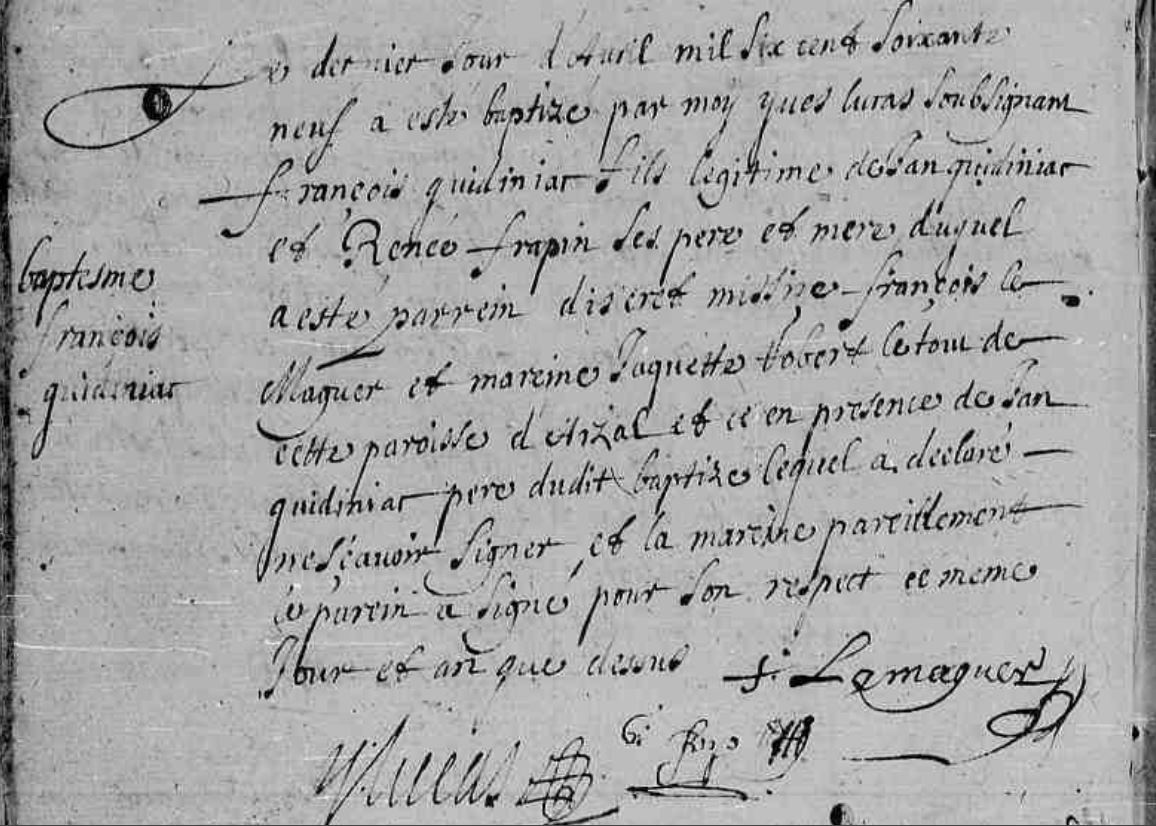 Le dernier Jour d'Avril mil six cent soixante
neuf a esté baptizé par moy yves lucas soubsignant
françois quidiniac fils legitime de Jan quidiniac
et Renée frapin ses pere et mere duquel
a esté parrein discret missire françois le
Maguer et mareine Jaquette le tout de
cette paroisse d'Arzal et ce en presence de Jan
quidiniac pere dudit baptizé lequel a declaré
ne sçavoir signer et la mareine pareillement
le parein a signé pour son respect ce meme
Jour et an que dessus f: Lemaguer
Y Lucas
baptesme
françois
quidiniac